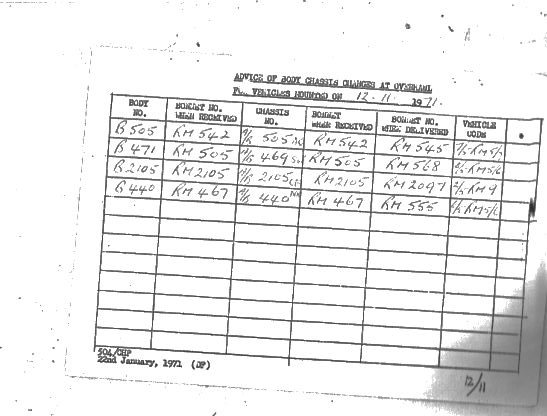 ADVICE OF BODY CHASSIS CHANGES AT OVERHAUL
FOR VEHICLES MOUNTED ON 12.11. 1971.
BODY NO. BONNET NO. WHEN RECEIVED CHASSIS NO. BONNET WHEN RECEIVED BONNET NO. WHEN DELIVERED VEHICLE CODE
B505 RM542 505 RM542 RM545 RM5/
B471 RM505 469 RM505 RM568 RM5/6
B2105 RM2105 2105 RM2105 RM2097 RM9
B440 RM467 440 RM467 RM555 RM5/6
504/CHP
22nd January, 1971 (DP)
12/11